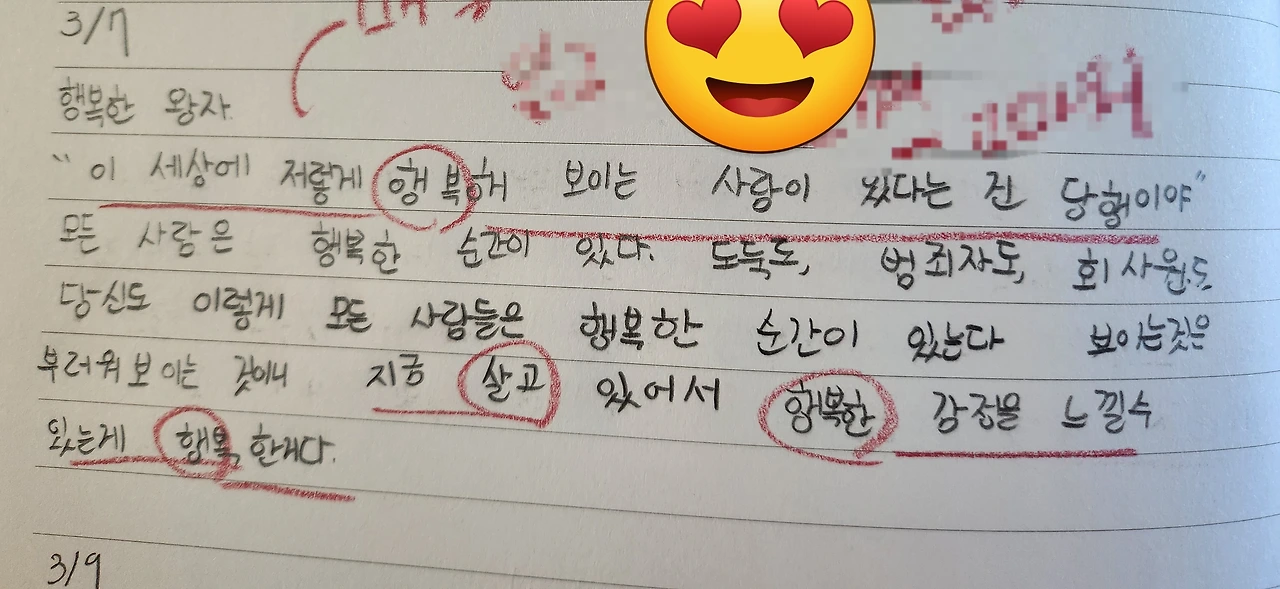 3/7
행복한 왕자
"이 세상에 저렇게 행복해 보이는 사람이 있다는 건 당행이야"
모든 사람은 행복한 순간이 있다. 도둑도, 범죄자도, 회사원도
당신도 이렇게 모든 사람들은 행복한 순간이 있는다 보이는것은
부러워보이는 것이니 지금 살고 있어서 행복한 감정을 느낄수
있는게 행복한게다.
3/9